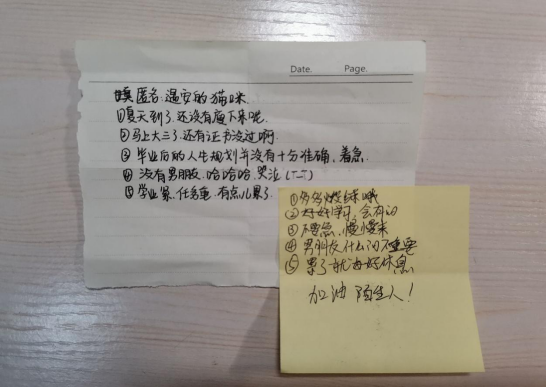 Date. Page.
匿名:温安的猫咪
①夏天到了,还没有瘦下来呢.
②马上大三了,还有证书没过啊.
③毕业后的人生规划并没有十分准确,着急.
④没有男朋友.哈哈哈.哭泣(T_T)
⑤学业累、任务重.有点儿累了.
①多多燃烧哦
②好好学习,会有的
③不要急,慢慢来
④男朋友什么的不重要
⑤累了就好好休息
加油 陌生人!